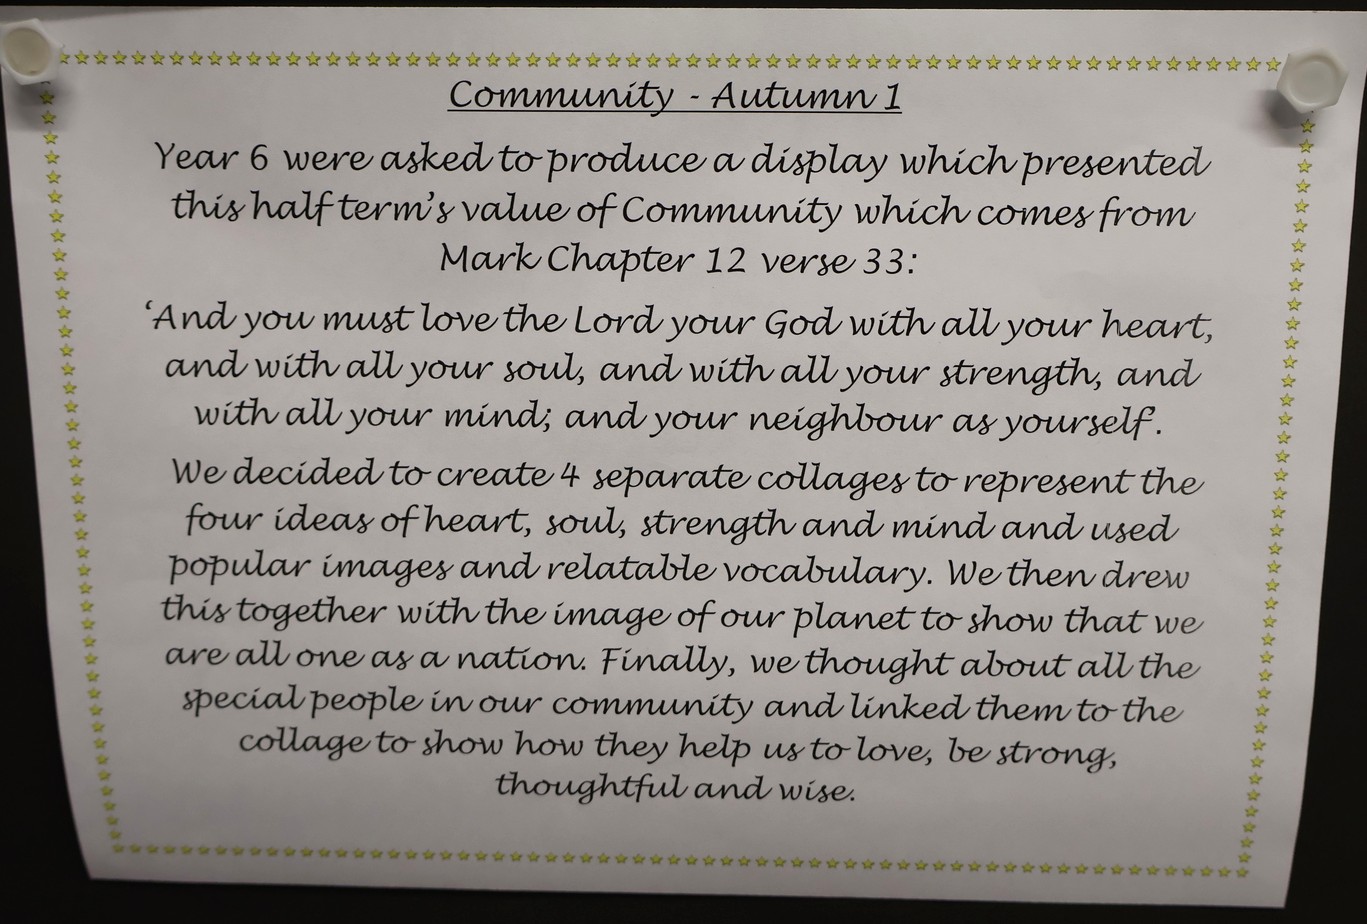 Community - Autumn 1
Year 6 were asked to produce a display which presented
this half term's value of Community which comes from
Mark Chapter 12 verse 33:
‘And you must love the Lord your God with all your heart,
and with all your soul, and with all your strength, and
with all your mind; and your neighbour as yourself’.
We decided to create 4 separate collages to represent the
four ideas of heart, soul, strength and mind and used
popular images and relatable vocabulary. We then drew
this together with the image of our planet to show that we
are all one as a nation. Finally, we thought about all the
special people in our community and linked them to the
collage to show how they help us to love, be strong,
thoughtful and wise.